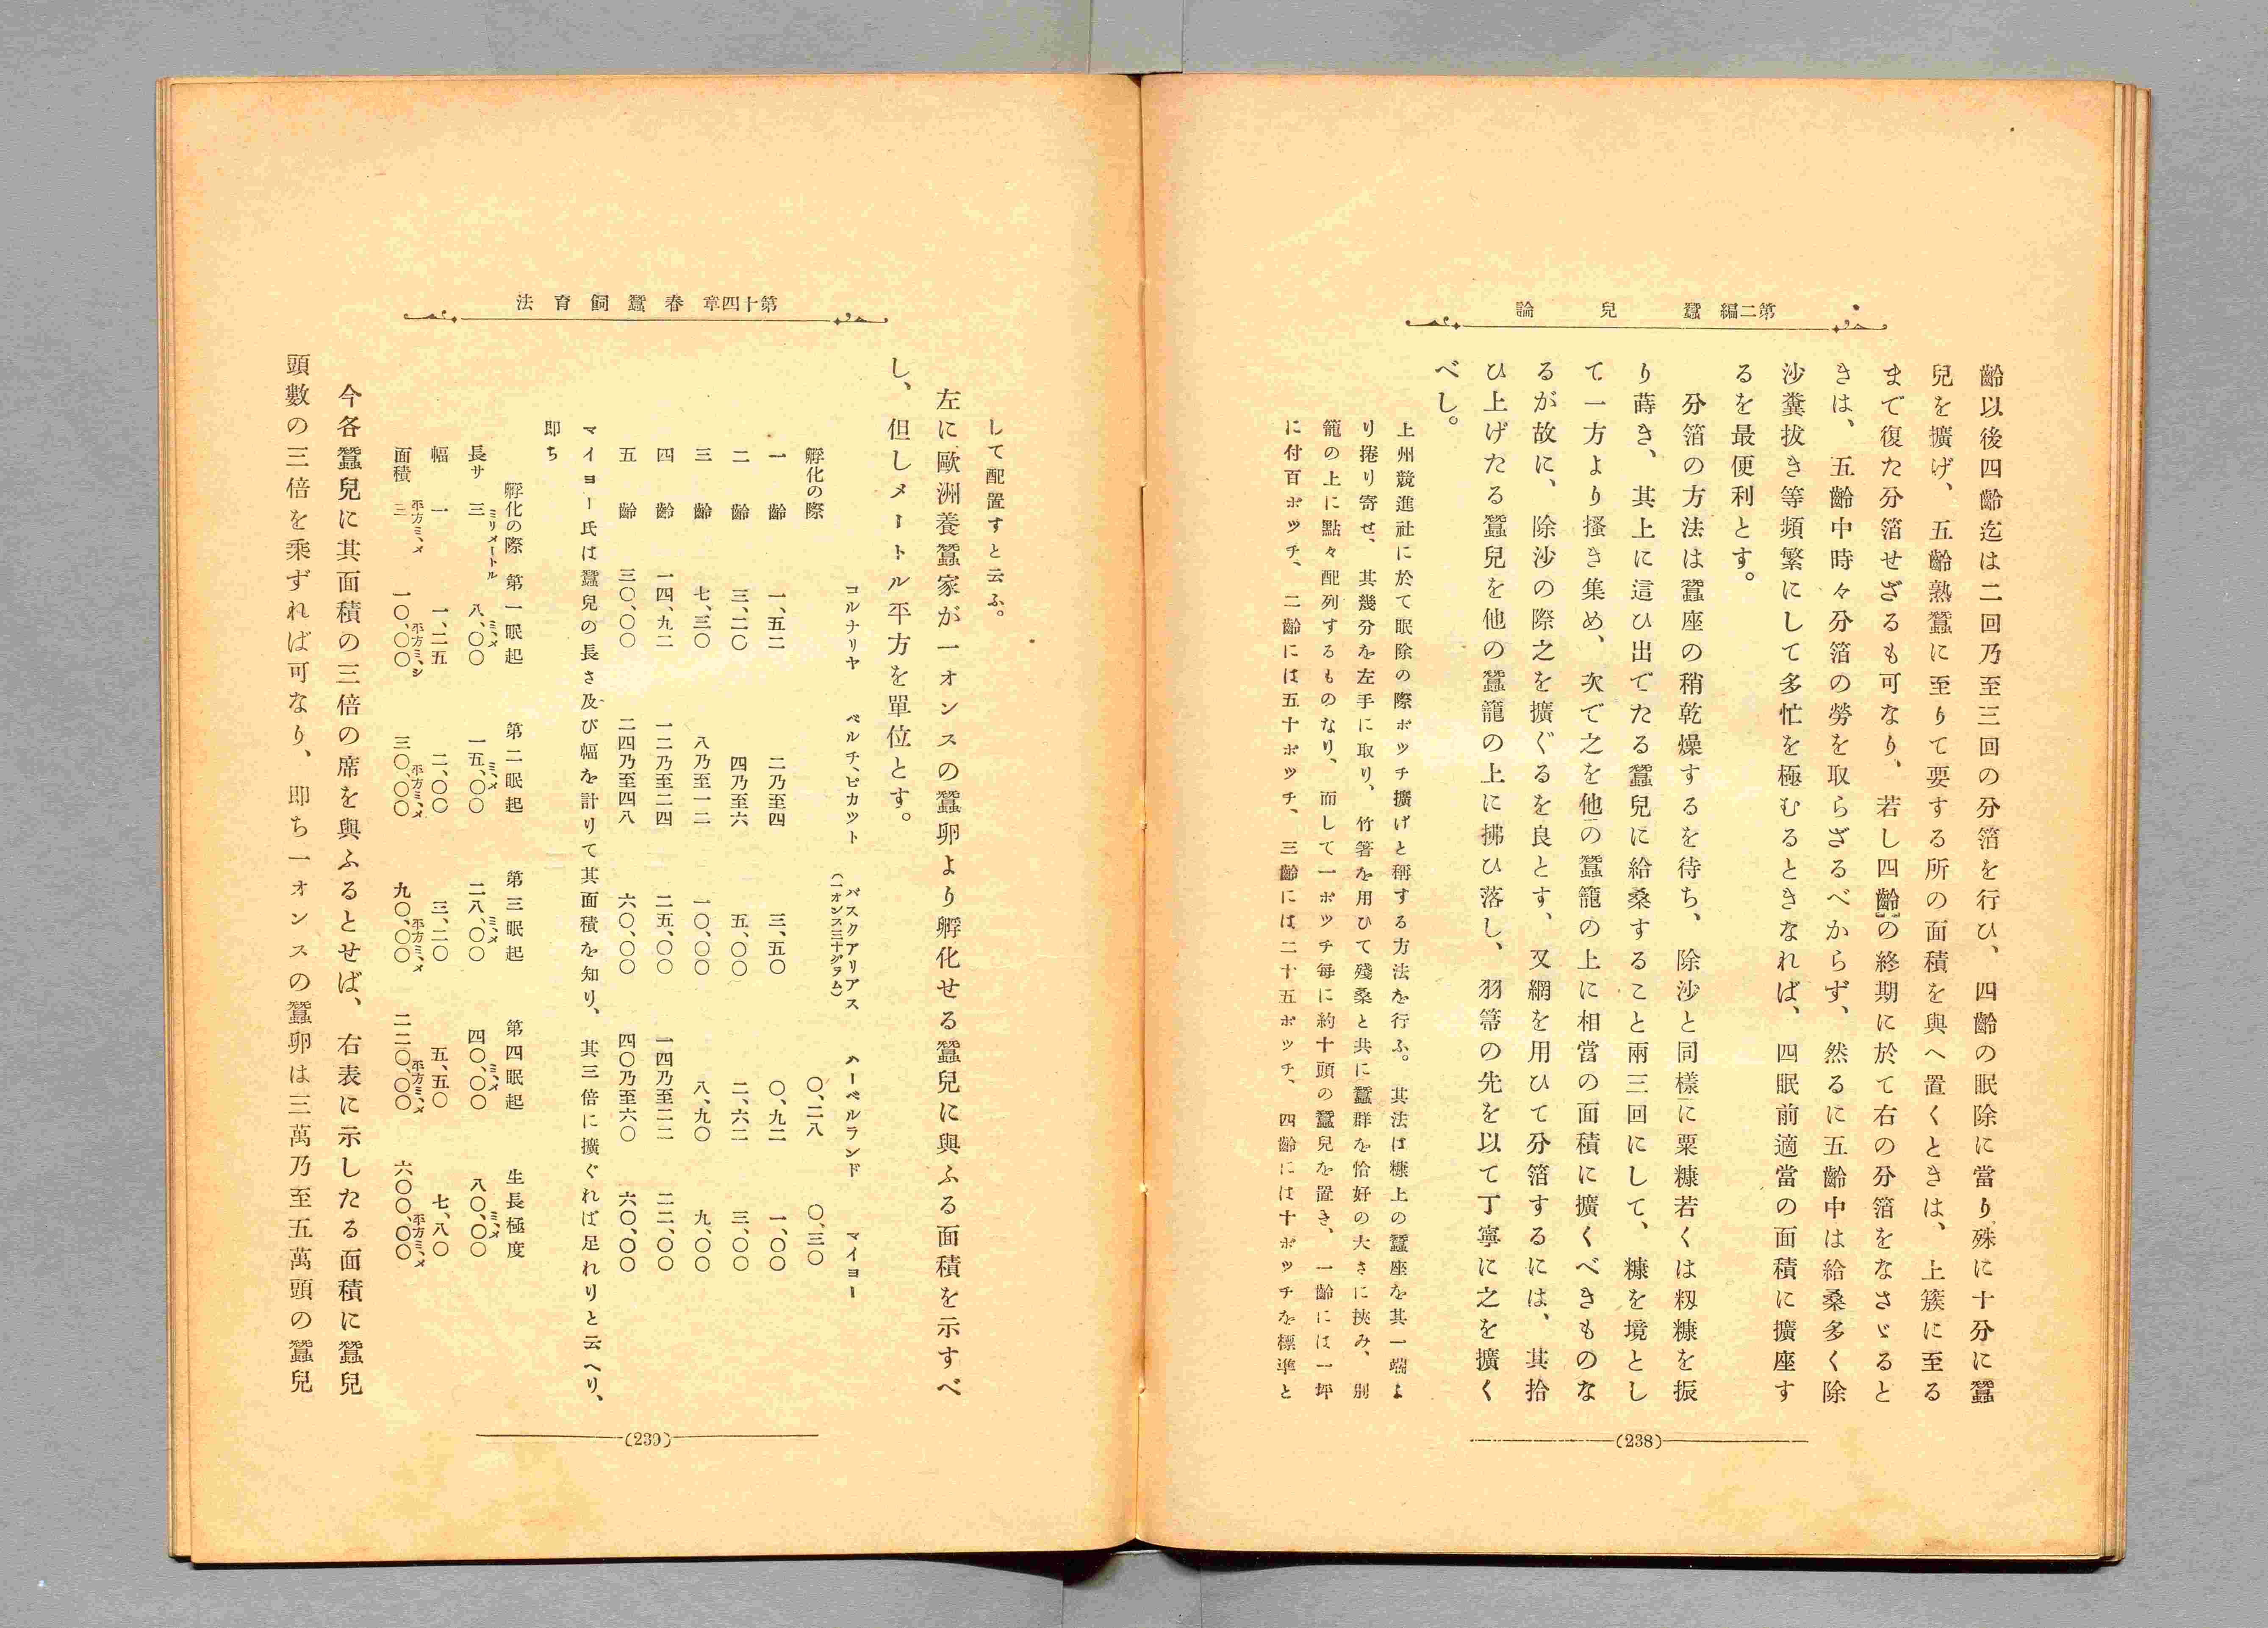 第二編 蠶兒論
齡以後四齡迄は二回乃至三回の分箔を行ひ、四齡の眠除に當り殊に十分に蠶
兒を擴げ、五齡熟蠶に至りて要する所の面積を與へ置くときは、上簇に至る
まで復た分箔せざるも可なり、若し四齡の終期に於て右の分箔をなさゞると
きは、五齡中時々分箔の勞を取らざるべからず、然るに五齡中は給桑多く除
沙糞拔き等頻繁にして多忙を極むるときなれば、四眠前適當の面積に擴座す
るを最便利とす。
分箔の方法は蠶座の稍乾燥するを待ち、除沙と同樣に粟糠若くは籾糠を振
り蒔き、其上に這ひ出でたる蠶兒に給桑すること兩三回にして、糠を境とし
て一方より搔き集め、次で之を他の蠶籠の上に相當の面積に擴くべきものな
るが故に、除沙の際之を擴ぐるを良とす、又網を用ひて分箔するには、其拾
ひ上げたる蠶兒を他の蠶籠の上に拂ひ落し、羽箒の先を以て丁寧に之を擴く
べし。
上州競進社に於て眠除の際ポッチ擴げと稱する方法を行ふ。其法は糠上の蠶座を其一端よ
り捲り寄せ、其幾分を左手に取り、竹箸を用ひて殘桑と共に蠶群を恰好の大さに挾み、別
籠の上に點々配列するものなり、而して一ポッチ每に約十頭の蠶兒を置き、一齡には一坪
に付百ポッチ、二齡には五十ポッチ、三齡には二十五ポッチ、四齡には十ポッチを標準と
(238)
第十四章 春蠶飼育法
して配置すと云ふ。
左に歐洲養蠶家が一オンスの蠶卵より孵化せる蠶兒に與ふる面積を示すべ
し、但しメートル平方を單位とす。
コルナリヤ ベルチ、ピカット バスクアリアス(一オンス三十グラム) ハーベルランド マイヨー
孵化の際 〇、二八 〇、三〇
一齡 一、五二 二乃至四 三、五〇 〇、九二 一、〇〇
二齡 三、二〇 四乃至六 五、〇〇 二、六二 三、〇〇
三齡 七、三〇 八乃至一二 一〇、〇〇 八、九〇 九、〇〇
四齡 一四、九二 一二乃至二四 二五、〇〇 一四乃至二二 二二、〇〇
五齡 三〇、〇〇 二四乃至四八 六〇、〇〇 四〇乃至六〇 六〇、〇〇
マイヨー氏は蠶兒の長さ及び幅を計りて其面積を知り、其三倍に擴ぐれば足れりと云へり、
即ち
孵化の際 第一眠起 第二眠起 第三眠起 第四眠起 生長極度
長サ 三ミリメートル 八、〇〇ミ、メ 一五、〇〇ミ、メ 二八、〇〇ミ、メ 四〇、〇〇ミ、メ 八〇、〇〇ミ、メ
幅 一 一、二五 二、〇〇 三、二〇 五、五〇 七、八〇
面積 三平方ミ、メ 一〇、〇〇平方ミ、シ 三〇、〇〇平方ミ、メ 九〇、〇〇平方ミ、メ 二二〇、〇〇平方ミ、メ 六〇〇、〇〇平方ミ、メ
今各蠶兒に其面積の三倍の席を與ふるとせば、右表に示したる面積に蠶兒
頭數の三倍を乘ずれば可なり、即ち一オンスの蠶卵は三萬乃至五萬頭の蠶兒
(239)